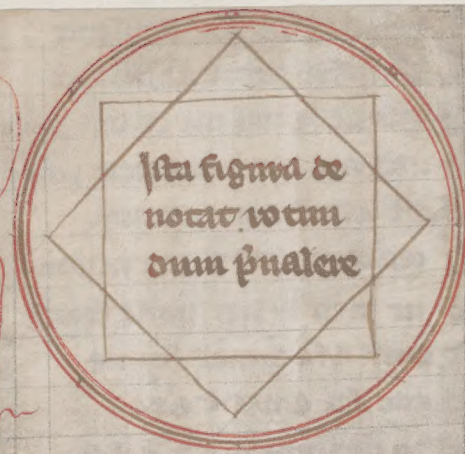 Ista figura de
notat rotun
dum p̄ualere